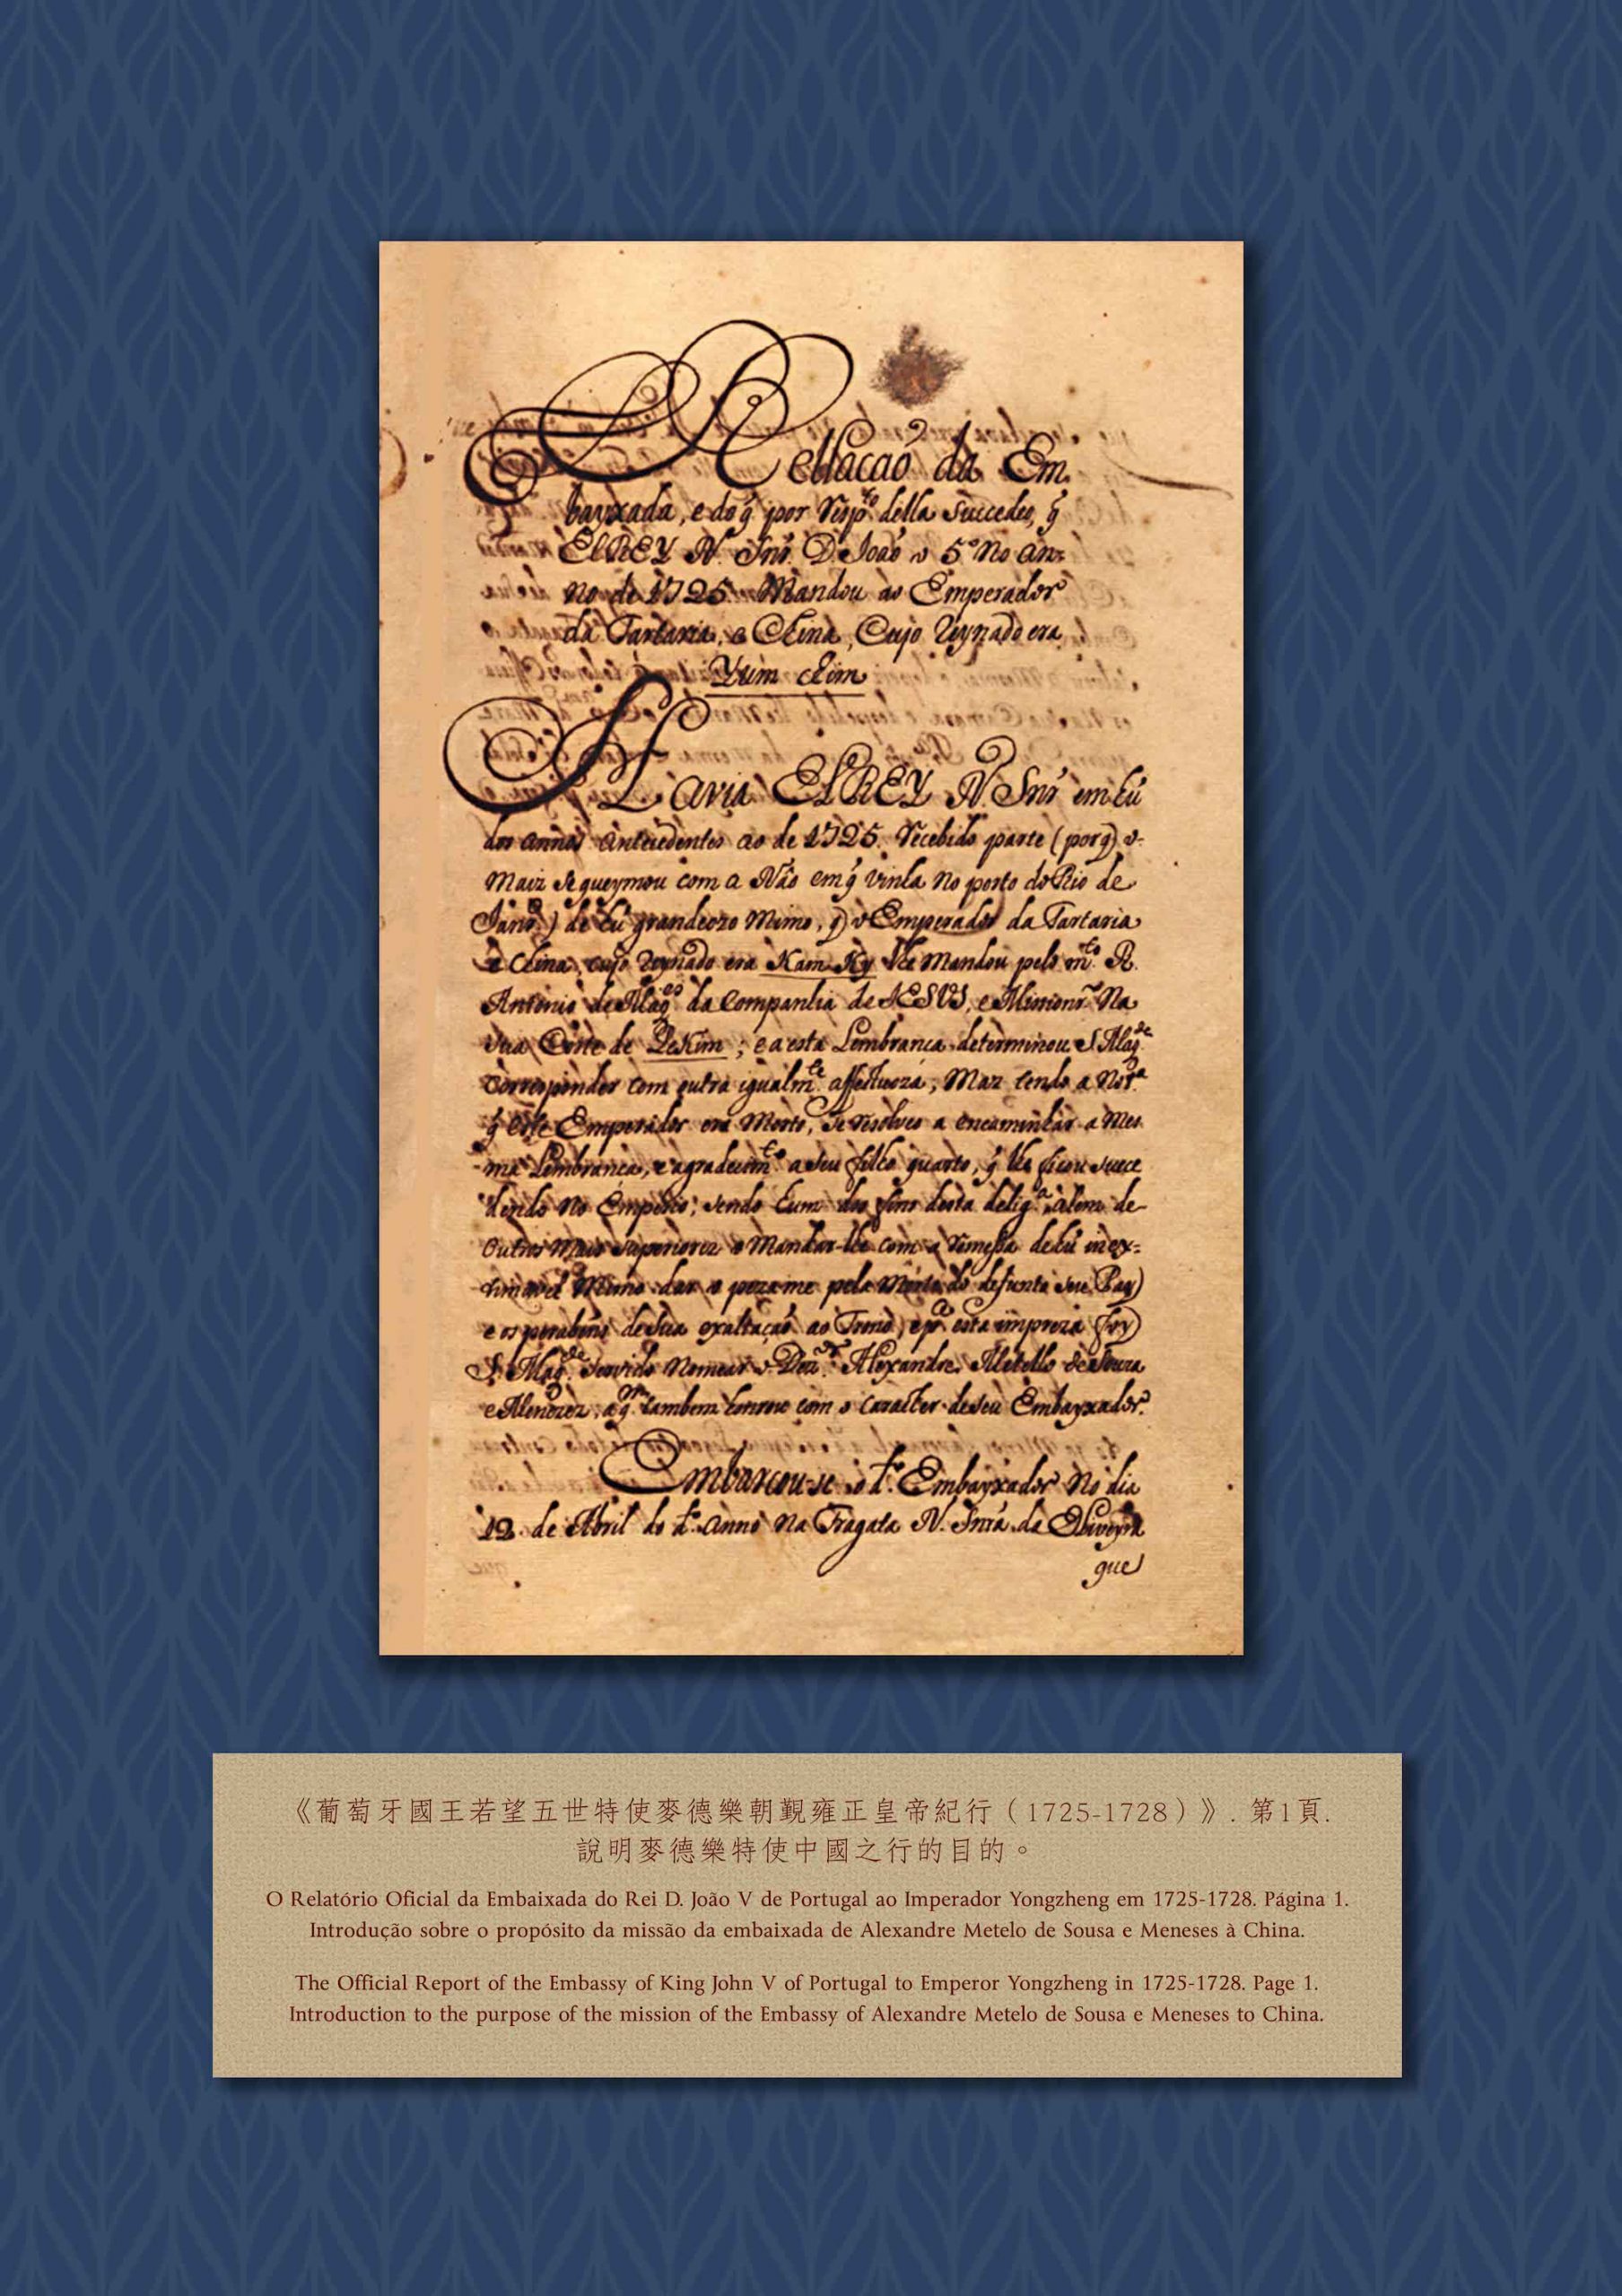 Rellação da Em
bayxada, e do q̃ por Resp.to della Succedeo, q̃
ElREY N. Snr. D. João o 5º No an-
no de 1725. Mandou ao Emperador
da Tartaria, e China, Cujo Reynado era
Yum chim
Havia ElREY N. Snr em hũ
dos annos antecedentes ao de 1725. Recebido parte (porq̃ o
Maiz se queymou com a Náo em q̃ vinha no porto do Rio de
Janr.o) de hũ grandiozo Mimo, q̃ o Emperador da Tartaria
e China, cujo Reynado era Kam Hy lhe Mandou pelo m.to R.
Antonio de Mag.es da Companhia de JESUS, e Missionr. Na
sua Corte de Pekim; e a esta Lembranca determinou S. Mag.de
corresponder com outra igualm.te affectuoza; Maz tendo a Not.a
q̃ este Emperador era Morto, se resolveo a encaminhar a Mes
ma Lembranca, e agradecim.to a seu filho quarto, q̃ lhe ficou succe
dendo no Emperio; sendo hum dos fins desta delig.a alem de
outros mais superiorez o Mandar-lhe com a remessa de hũ inex-
timavel Mimo dar o pezame pela Morte do defunto seu Pay
e os parabens de sua exaltação ao Trono, e p.a esta impreza foy
S. Mag.de servido nomear o Dez.or Alexandre Metello de Souza
e Menezez, a q.m tambem honrou com o caracter de seu Embayxador.
Embarcou-se o d.o Embayxador No dia
12 de Abril do d.o anno na Fragata N. Snra da Oliveyra
que
《葡萄牙國王若望五世特使麥德樂朝覲雍正皇帝紀行（1725-1728）》. 第1頁.
說明麥德樂特使中國之行的目的。
O Relatório Oficial da Embaixada do Rei D. João V de Portugal ao Imperador Yongzheng em 1725-1728. Página 1.
Introdução sobre o propósito da missão da embaixada de Alexandre Metelo de Sousa e Meneses à China.
The Official Report of the Embassy of King John V of Portugal to Emperor Yongzheng in 1725-1728. Page 1.
Introduction to the purpose of the mission of the Embassy of Alexandre Metelo de Sousa e Meneses to China.